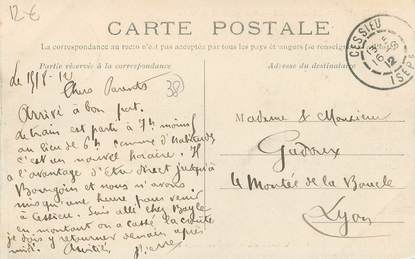 12 €
CARTE POSTALE
La correspondance au recto n'est pas acceptée par tous les pays étrangers (se renseigner
Partie réservée à la correspondance
Adresse du destinataire
CESSIEU
ISERE
12
38
Chers Parents
Arrivé à bon port.
Le train est parti à 7h moins
au lieu de 6h comme d'habitude
c'est un nouvel horaire. Il
a l'avantage d'être direct jusqu'à
Bourgoin et nous n'avons
mis qu'une heure pour venir
à Cessieu. Suis allé chez Bayle
en montant on a cassé la croûte
je dois y retourner demain après
midi. Amitiés Pierre
Madame & Monsieur
Gadoux
4 Montée de la Boucle
Lyon